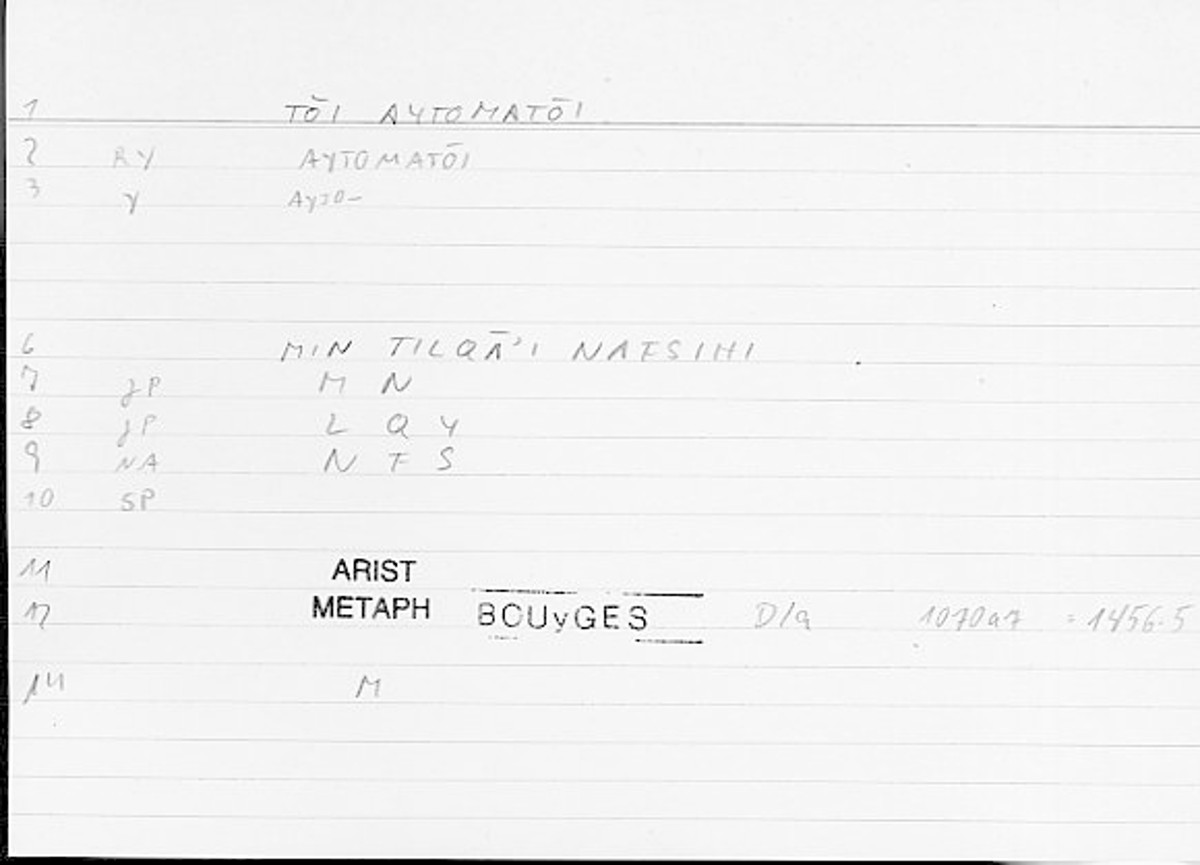 1 TŌI AYTOMATŌI
2 RY AYTOMATŌI
3 Y AYTO-
6 MIN TILQĀ'I NAFSIHI
7 gP M N
8 gP L Q Y
9 NA N F S
10 SP
11 ARIST
12 METAPH BOUyGES D/a 1070a7 = 1456.5
14 M